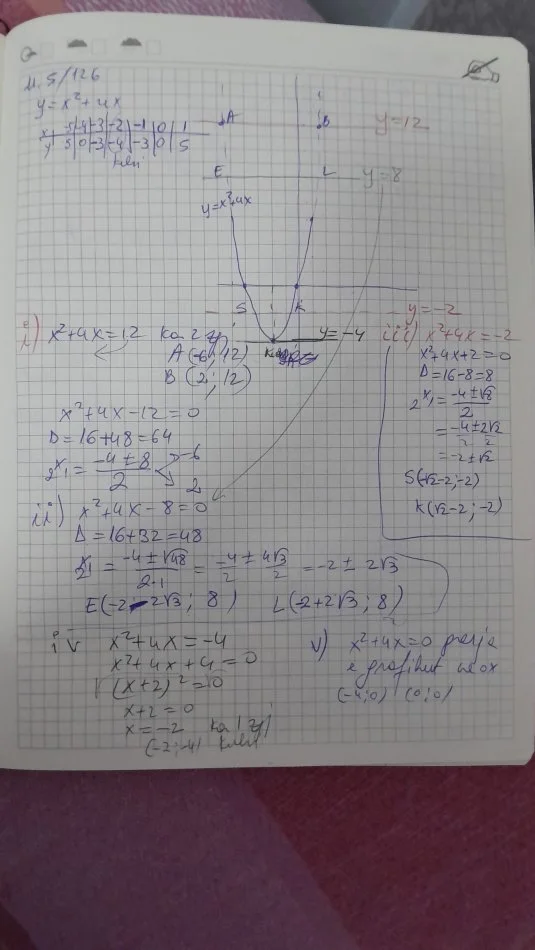 U. 5/126
y = x² + 4x
x -5 -4 -3 -2 -1 0 1
y 5 0 -3 -4 -3 0 5
A
B
y = 12
E
L
y = 8
y = x²+4x
S
K
y = -2
y = -4
i) x²+4x = 12 ka 2 zgj
A (-6; 12)
B (2; 12)
x² + 4x - 12 = 0
D = 16 + 48 = 64
2x1 = -4 ± 8 / 2
-6
2
ii) x² + 4x - 8 = 0
D = 16 + 32 = 48
x 2 1 = -4 ± √48 / 2·1 = -4/2 ± 4√3/2 = -2 ± 2√3
E (-2 - 2√3; 8) L (-2 + 2√3; 8)
iii) x² + 4x = -2
x² + 4x + 2 = 0
D = 16 - 8 = 8
2x1 = -4 ± √8 / 2
= -4/2 ± 2√2/2
= -2 ± √2
S (-√2 -2; -2)
K (√2 -2; -2)
iv x² + 4x = -4
x² + 4x + 4 = 0
√(x+2)² = √0
x + 2 = 0
x = -2 ka 1 zgj
(-2; -4)
v) x² + 4x = 0
e grafikut me ox
(-4; 0) (0; 0)